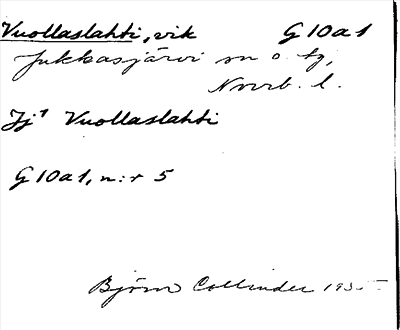 Vuollaslahti, vik G 10 a 1
Jukkasjärvi sn o. tg,
Norrb. l.
Jj¹ Vuollaslahti
G 10 a 1, n:r 5
Björn Collinder 1935